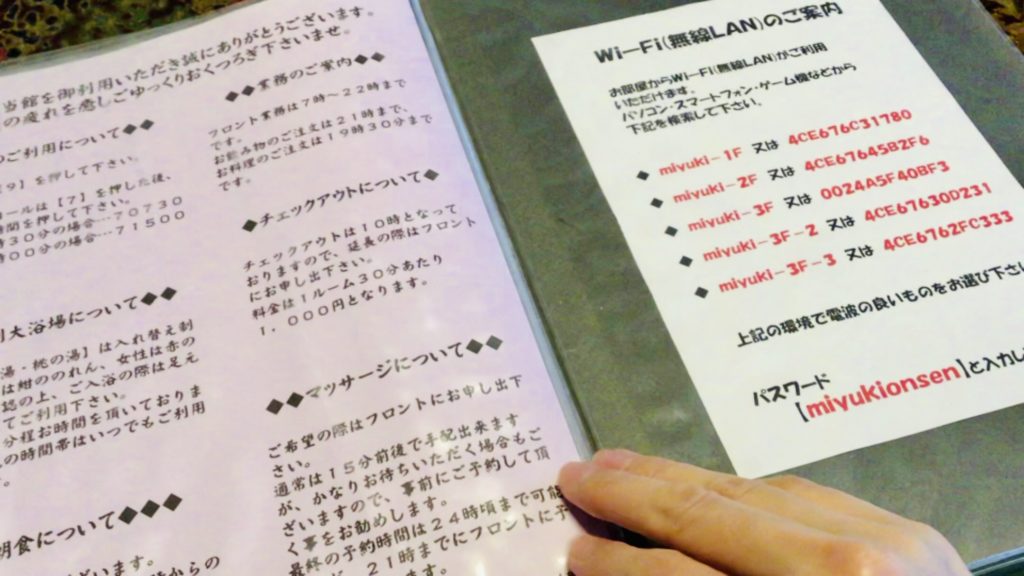 当館を御利用いただき誠にありがとうございます。
の疲れを癒しごゆっくりおくつろぎ下さいませ。
のご利用について◆◆
【9】を押して下さい。
コールは【7】を押した後、
時間を押して下さい。
時30分の場合…70730
時00分の場合…71500
大浴場について◆◆
湯・桃の湯】は入れ替え制
は紺ののれん、女性は赤の
認の上、ご入浴の際は足元
てご利用下さい。
分程お時間を頂いておりま
の時間帯はいつでもご利用
す。
朝食について◆◆◆
ございます。
からの
◆◆業務のご案内◆◆
フロント業務は7時～22時まで
です。
お飲み物のご注文は21時まで、
お料理のご注文は19時30分まで
です。
◆チェックアウトについて◆
チェックアウトは10時となって
おりますので、延長の際はフロント
にお申し出下さい。
料金は1ルーム30分あたり
1，000円となります。
◆◆マッサージについて◆◆
ご希望の際はフロントにお申し出下
さい。
通常は15分前後で手配出来ます
が、かなりお待ちいただく場合もご
ざいますので、事前にご予約して頂
く事をお勧めします。
最終の予約時間は24時頃まで可能
で、21時までにフロントに予
Wi-Fi(無線LAN)のご案内
お部屋からWi-Fi(無線LAN)がご利用
いただけます。
パソコン・スマートフォン・ゲーム機などから
下記を検索して下さい。
◆ miyuki-1F 又は 4CE676C31780
◆ miyuki-2F 又は 4CE67645B2F6
◆ miyuki-3F 又は 0024A5F40BF3
◆ miyuki-3F-2 又は 4CE67630D231
◆ miyuki-3F-3 又は 4CE6762FC333
上記の環境で電波の良いものをお選び下さい
パスワード
【miyukionsen】と入力し